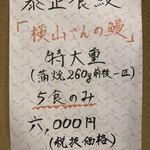 「横山さんの鰻」
特大重
(蒲焼260g前後一匹)
5食のみ
六,000円
(税抜価格)